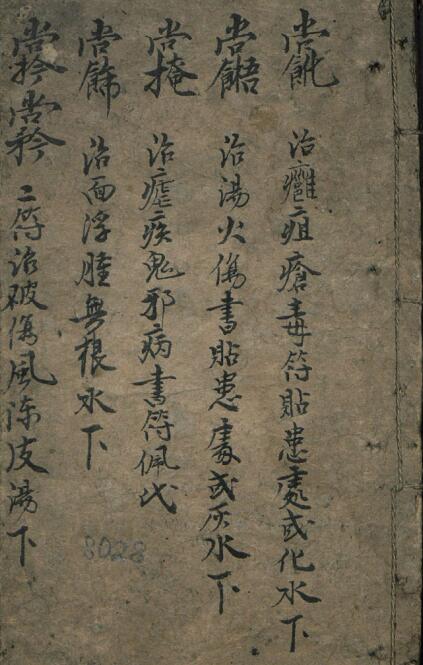 治癰疽瘡毒符貼患處或化水下
治湯火傷書貼患處或灰水下
治瘧疾鬼邪病書符佩代
治面浮腫無根水下
二符治破傷風陳皮湯下
8028